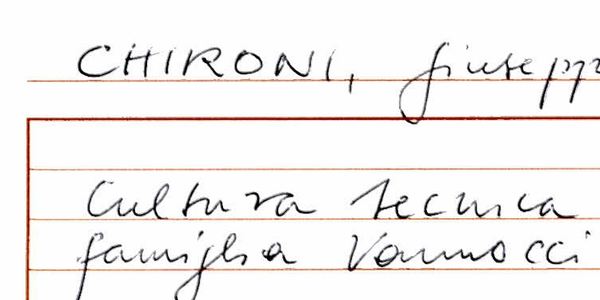 CHIRONI, Giusepp
Cultura tecnica
famiglia Vannocci